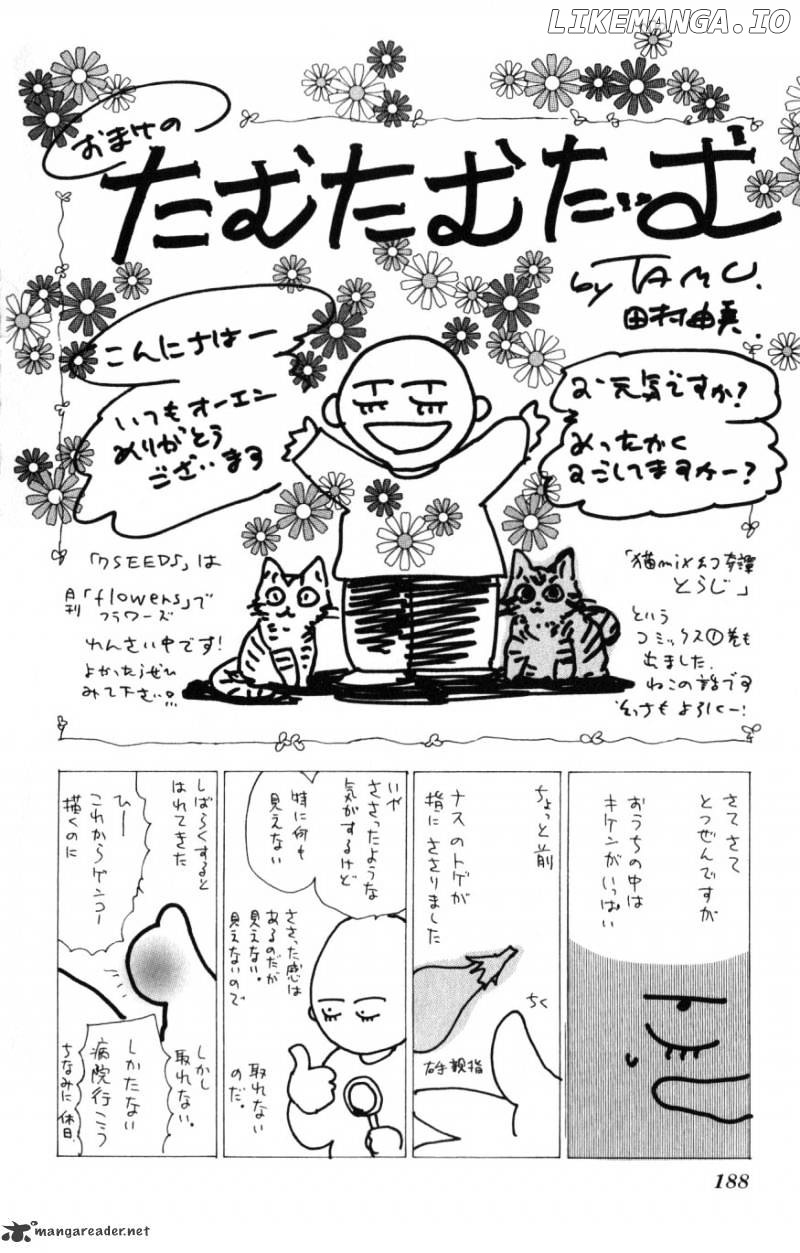 LIKEMANGA.IO
おまけの
たむたむたいむ
by TAMU.
田村由美.
こんにちはー
いつもオーエン
ありがとう
ございます
お元気ですか?
あったかく
すごしてますかー?
「7SEEDS」は
月刊「flowers」で
フラワーズ
れんさい中です!
よかったらぜひ
みて下さい。
「猫mix幻奇譚
とらじ」
という
コミックス①巻も
出ました.
ねこの話です
そっちもよろしくー!
さてさて
とつぜんですが
おうちの中は
キケンがいっぱい
ちょっと前
ナスのトゲが
指にささりました
ちく
右手親指
いや
ささったような
気がするけど
特に何も
見えない
ささった感は
あるのだが
見えない。
見えないので
取れない
のだ。
しばらくすると
はれてきた
ひー
これからゲンコー
描くのに
しかし
取れない。
しかたない
病院行こう
ちなみに休日.
188
mangareader.net